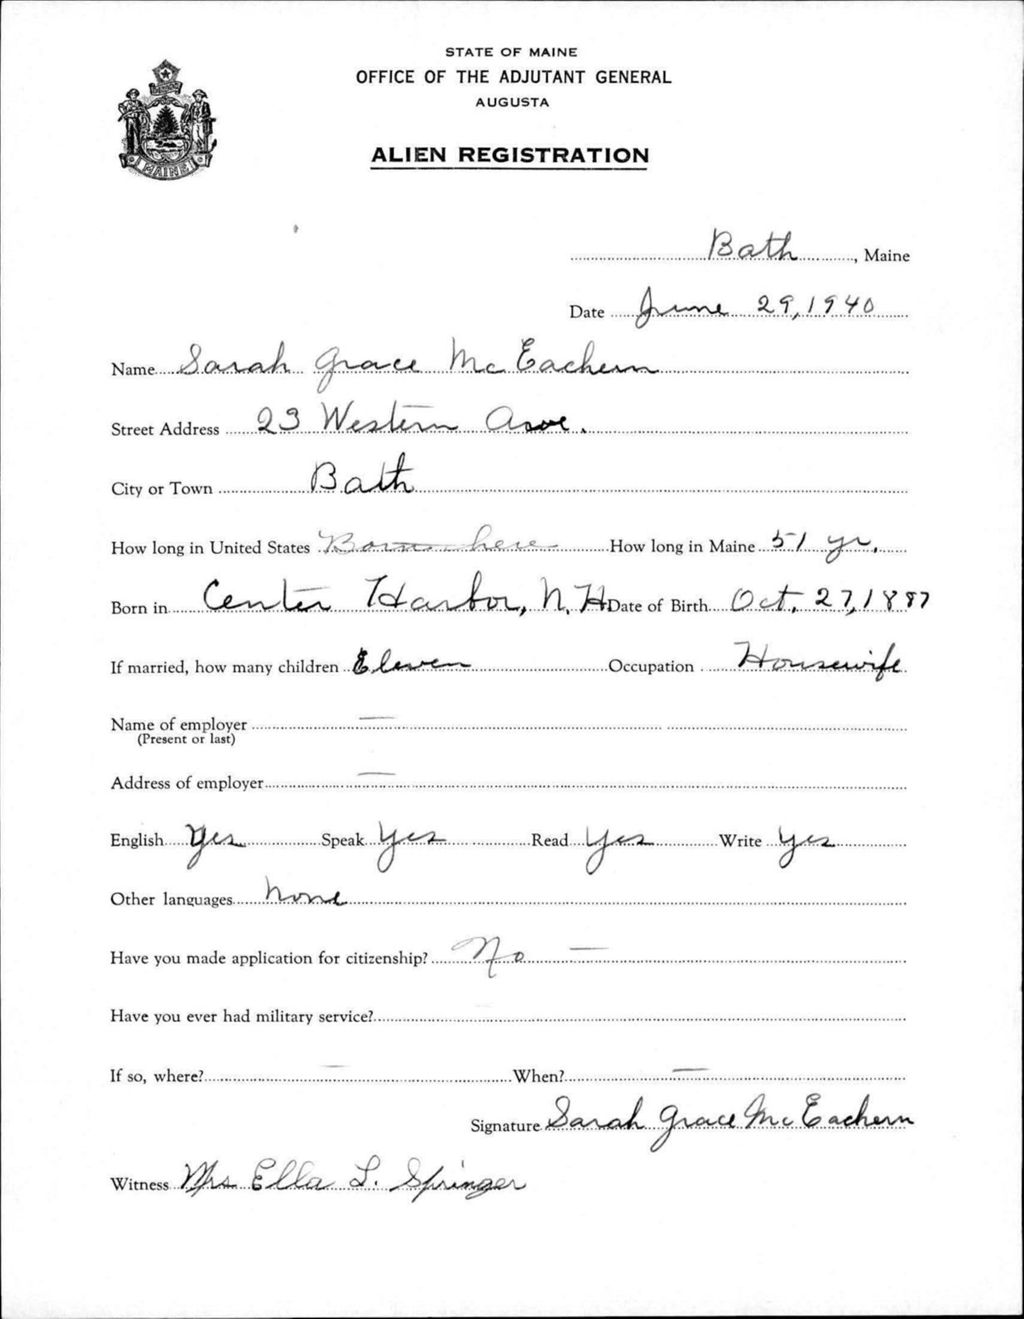 STATE OF MAINE
OFFICE OF THE ADJUTANT GENERAL
AUGUSTA
ALIEN REGISTRATION
MAINE
Bath, Maine
Date June 29, 1940
Name Sarah Grace McEachern
Street Address 23 Western Ave.
City or Town Bath
How long in United States Born here How long in Maine 51 yr.
Born in Center Harbor, N.H. Date of Birth Oct. 27, 1887
If married, how many children Eleven Occupation Housewife
Name of employer —
(Present or last)
Address of employer —
English Yes Speak Yes Read Yes Write Yes
Other languages None
Have you made application for citizenship? No —
Have you ever had military service?
If so, where? — When? —
Signature Sarah Grace McEachern
Witness Mrs Ella L. Springer